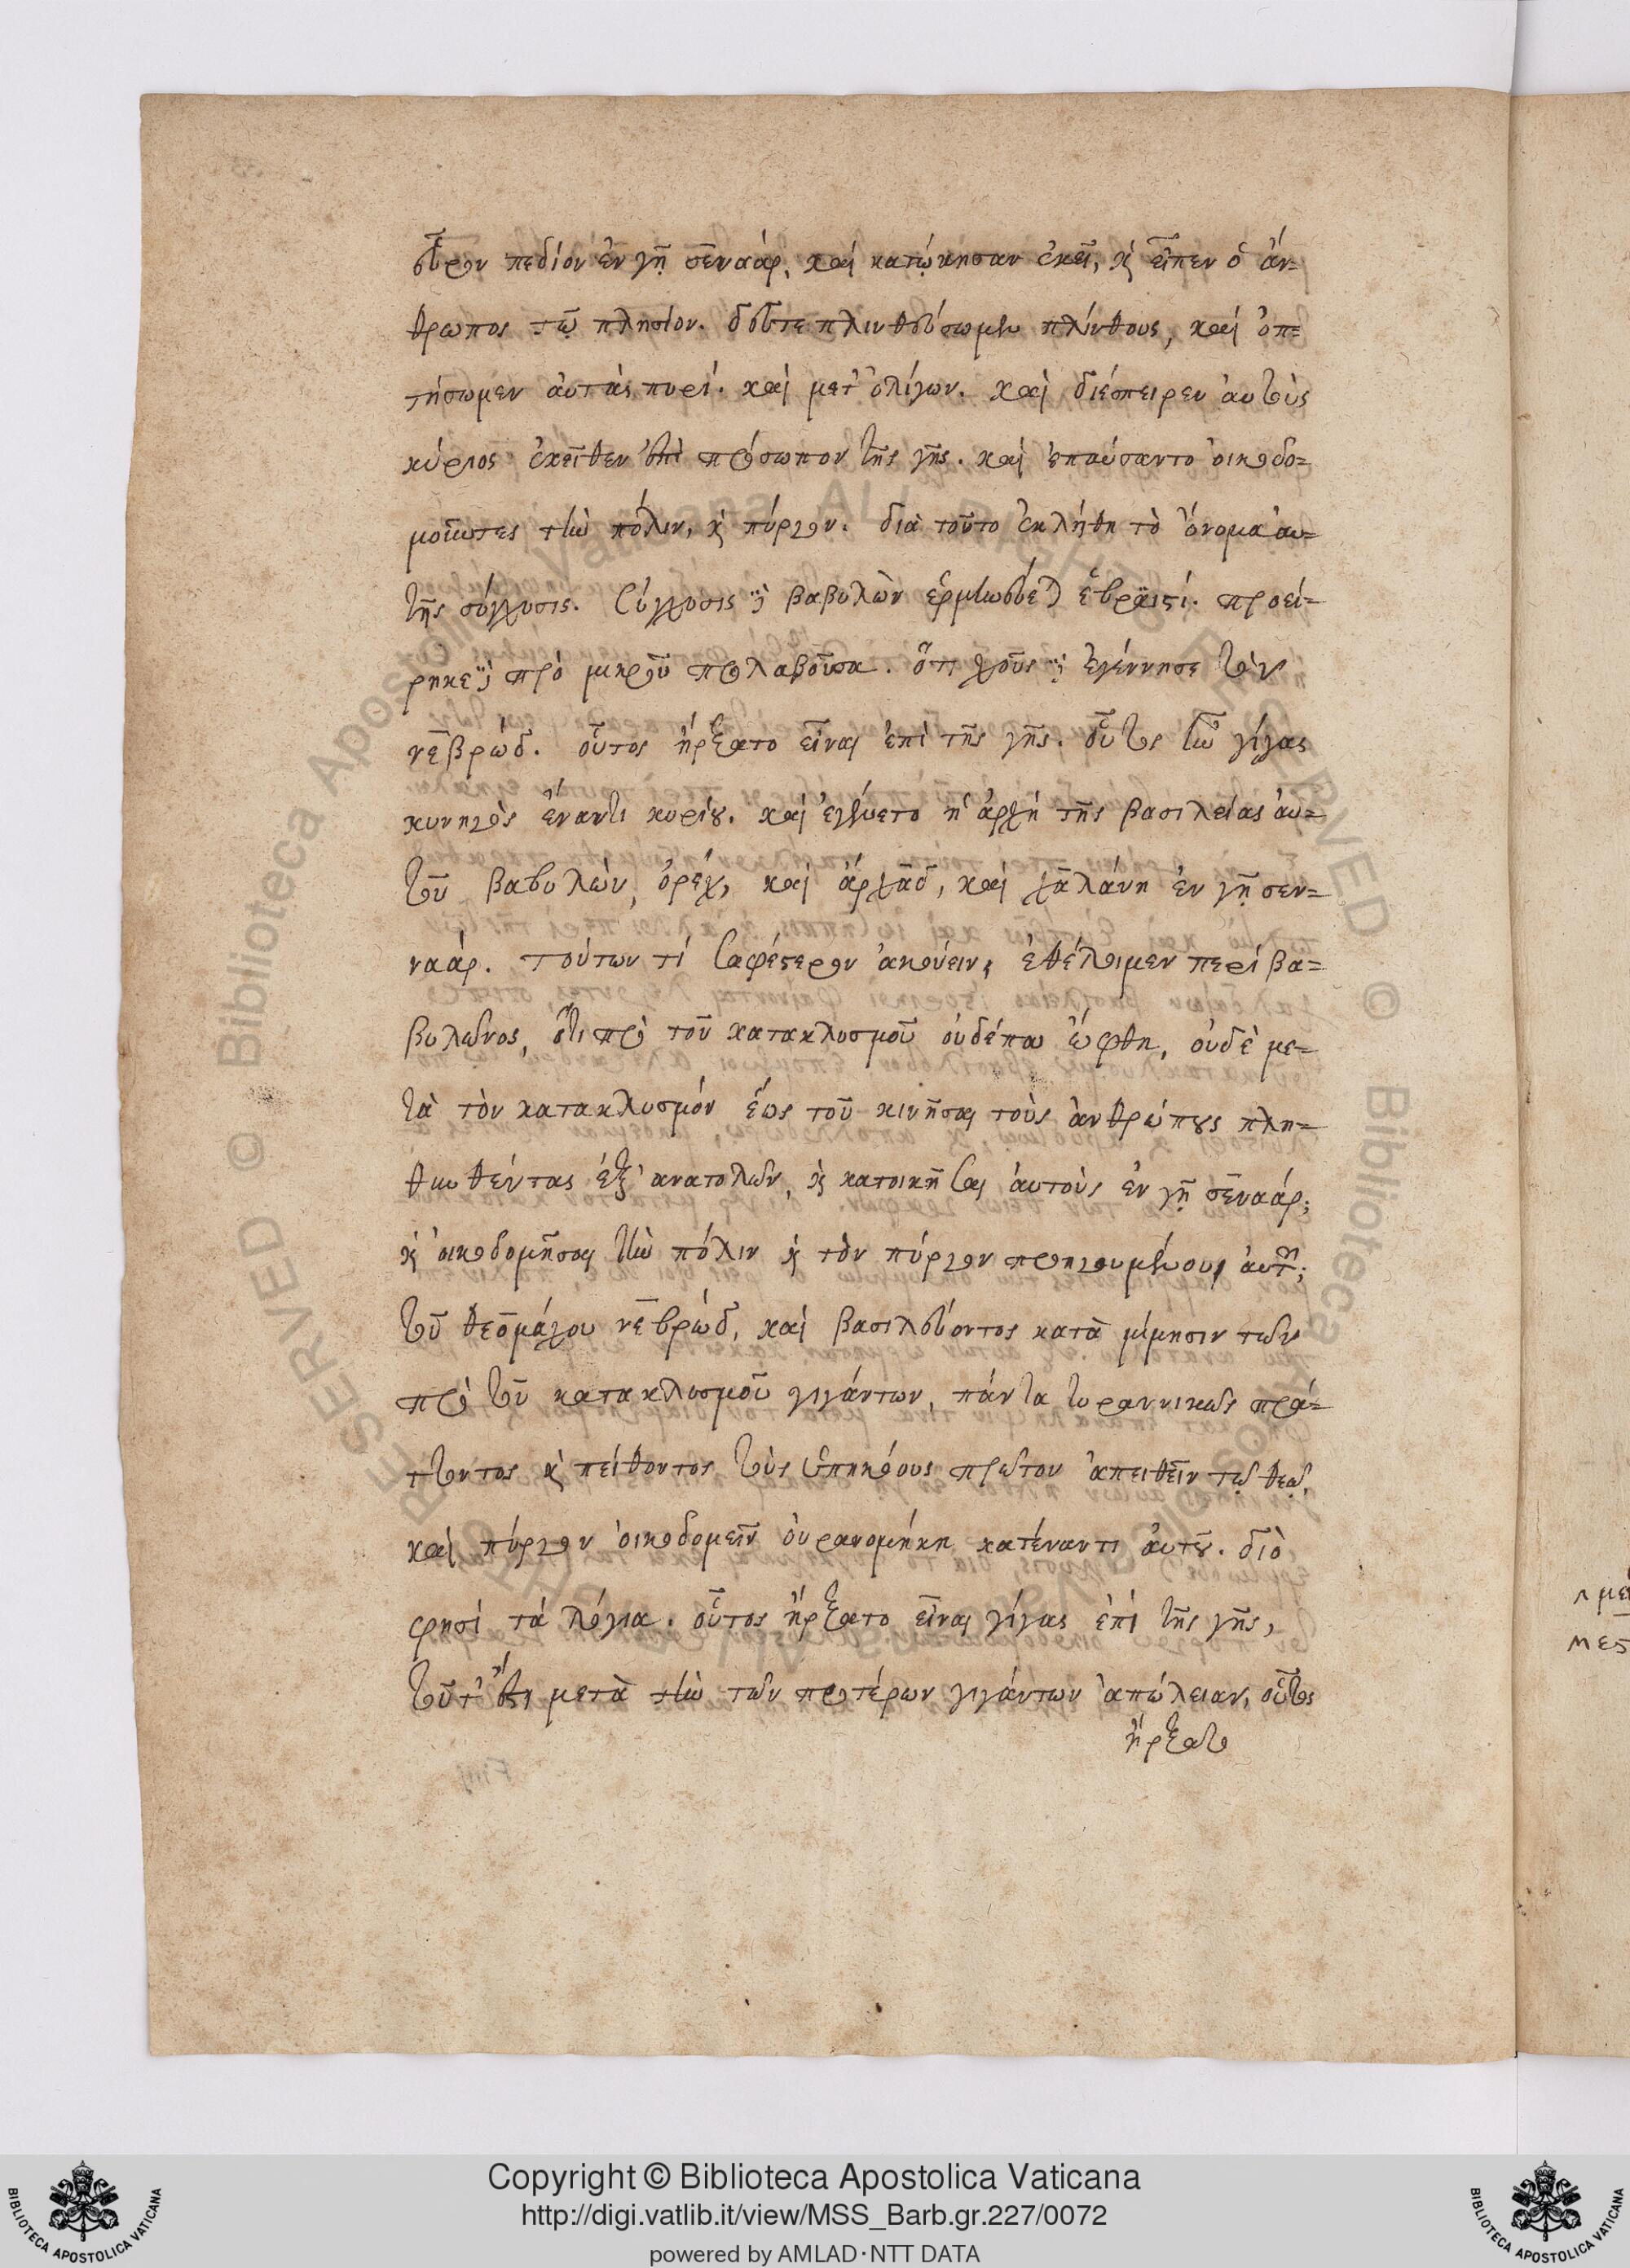 εὗρον πεδίον ἐν γῇ σεναάρ, καὶ κατῴκησαν ἐκεῖ, κ̀ εἶπεν ὁ ἄν=
θρωπος τῷ πλησίον. δεῦτε πλινθεύσωμεν πλίνθους, καὶ ὀπ=
τήσωμεν αὐτὰς πυρί. καὶ μετ' ὀλίγων. καὶ διέσπειρεν αὐτοὺς
κύριος ἐκεῖθεν ἐπὶ πρόσωπον τῆς γῆς. καὶ ἐπαύσαντο οἰκοδο=
μοῦντες τὴν πόλιν, κ̀ πύργον. διὰ τοῦτο ἐκλήθη τὸ ὄνομα αὐ=
τῆς σύγχυσις. σύγχυσις γὰρ βαβυλὼν ἑρμηνεύεται ἑβραϊστί. προεί=
ρηκε γὰρ πρὸ μικροῦ προλαβοῦσα. ὅτι χοῦς ἐγέννησε τὸν
νεβρώδ. οὗτος ἤρξατο εἶναι ἐπὶ τῆς γῆς. οὗτος ἦν γίγας
κυνηγὸς ἔναντι κυρίου. καὶ ἐγένετο ἡ ἀρχὴ τῆς βασιλείας αὐ=
τοῦ βαβυλὼν, ὀρέχ, καὶ ἀρχὰδ, καὶ χαλάνη ἐν γῇ σεν=
ναάρ. τούτων τί σαφέστερον ἀκούειν, ἐθέλοιμεν περὶ βα=
βυλῶνος, ὅτι πρὸ τοῦ κατακλυσμοῦ οὐδέπω ὤφθη, οὐδὲ με=
τὰ τὸν κατακλυσμόν ἕως τοῦ κινῆσαι τοὺς ἀνθρώπους πλη=
θυνθέντας ἐξ ἀνατολῶν, κ̀ κατοικῆσαι αὐτοὺς ἐν γῇ σεναάρ;
κ̀ οἰκοδομῆσαι τὴν πόλιν κ̀ τὸν πύργον προηγουμένου αὐτῶν;
τοῦ θεομάχου νεβρώδ, καὶ βασιλεύοντος κατὰ μίμησιν τῶν
πρὸ τοῦ κατακλυσμοῦ γιγάντων, πάντα τυραννικῶς πρά=
ττοντος κ̀ πείθοντος τοὺς ὑπηκόους πρῶτον ἀπειθεῖν τῷ θεῷ,
καὶ πύργον οἰκοδομεῖν οὐρανομήκη κατέναντι αὐτοῦ. διό
φησι τὰ λόγια. οὗτος ἤρξατο εἶναι γίγας ἐπὶ τῆς γῆς,
τοῦτ' ἔστι μετὰ τὴν τῶν προτέρων γιγάντων ἀπώλειαν, οὗτος
ἤρξατο
Copyright © Biblioteca Apostolica Vaticana
http://digi.vatlib.it/view/MSS_Barb.gr.227/0072
powered by AMLAD·NTT DATA